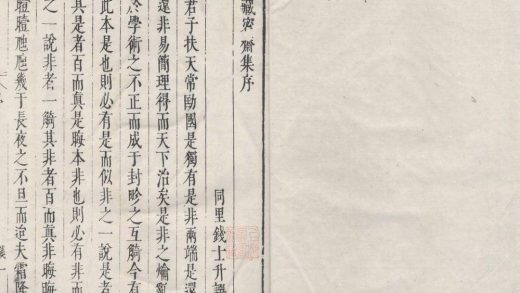 藏密齋集序
同里錢士升譔
君子扶天常勖國是獨有是非兩端是還
還非易簡理得而天下治矣是非之爚
於學術之不正而成于封畛之互觭今有
此本是也則必有是而似非之一說是者
其是者百而真是晦本非也則必有非而
之一說非者一觭其非者百而真非晦晦
曀曀虺虺幾于長夜之不旦而迨夫霜降